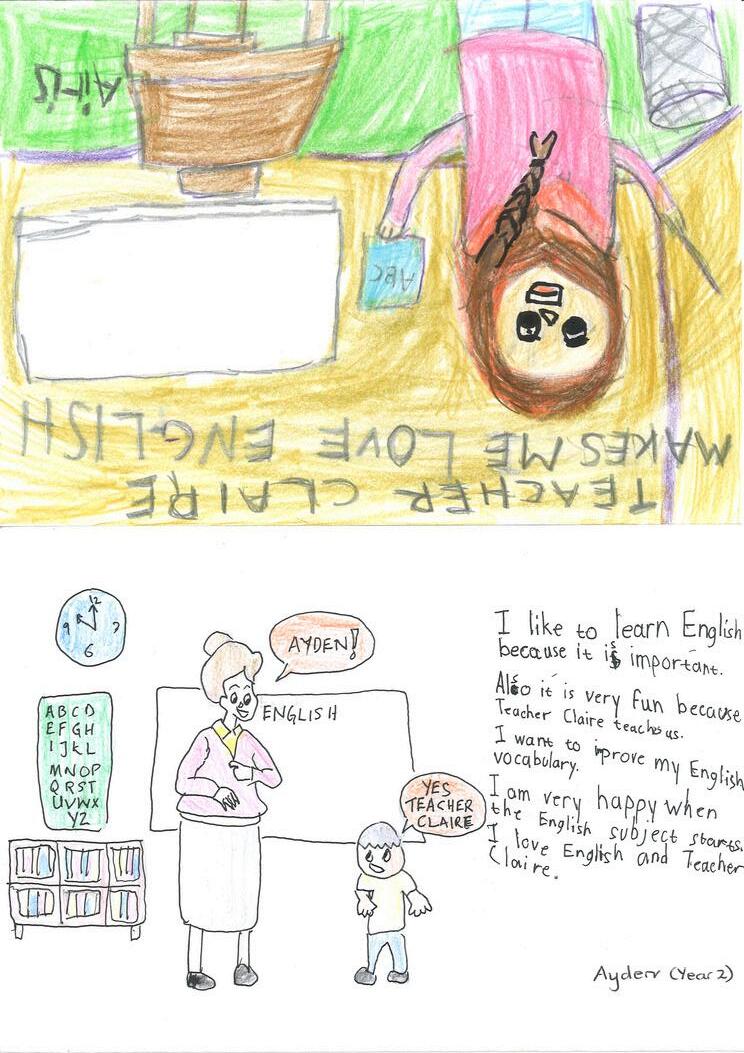 TEACHER CLAIRE
MAKES ME LOVE ENGLISH
ABC
12
9 3
6
AYDEN!
ENGLISH
A B C D
E F G H
I J K L
M N O P
Q R S T
U V W X
Y Z
YES
TEACHER
CLAIRE
I like to learn English
because it is important.
Also it is very fun because
Teacher Claire teach us.
I want to iprove my English
vocabulary.
I am very happy when
the English subject starts.
I love English and Teacher
Claire.
Ayden (Year 2)